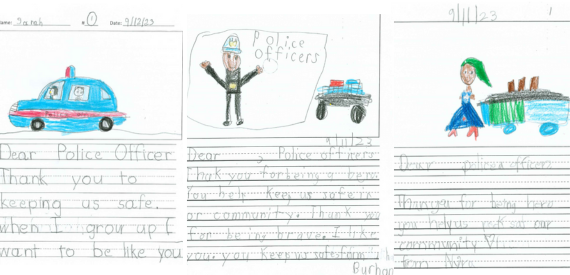 Name: Sarah
Date: 9/12/23
Dear Police Officer
Thank you to
keeping us safe.
when I grow up I
want to be like you
Police
officers
9/11/23
Dear , Police officers
Thak you for being a
You help Keep us safe in
or community. Thank
for being brave. I
you. you Keep us safe
Burhan
9/11/23
1
Dear police officers
Thank you for being
you help us our
community
from